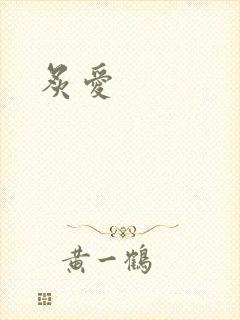 炙愛
黄一鶴